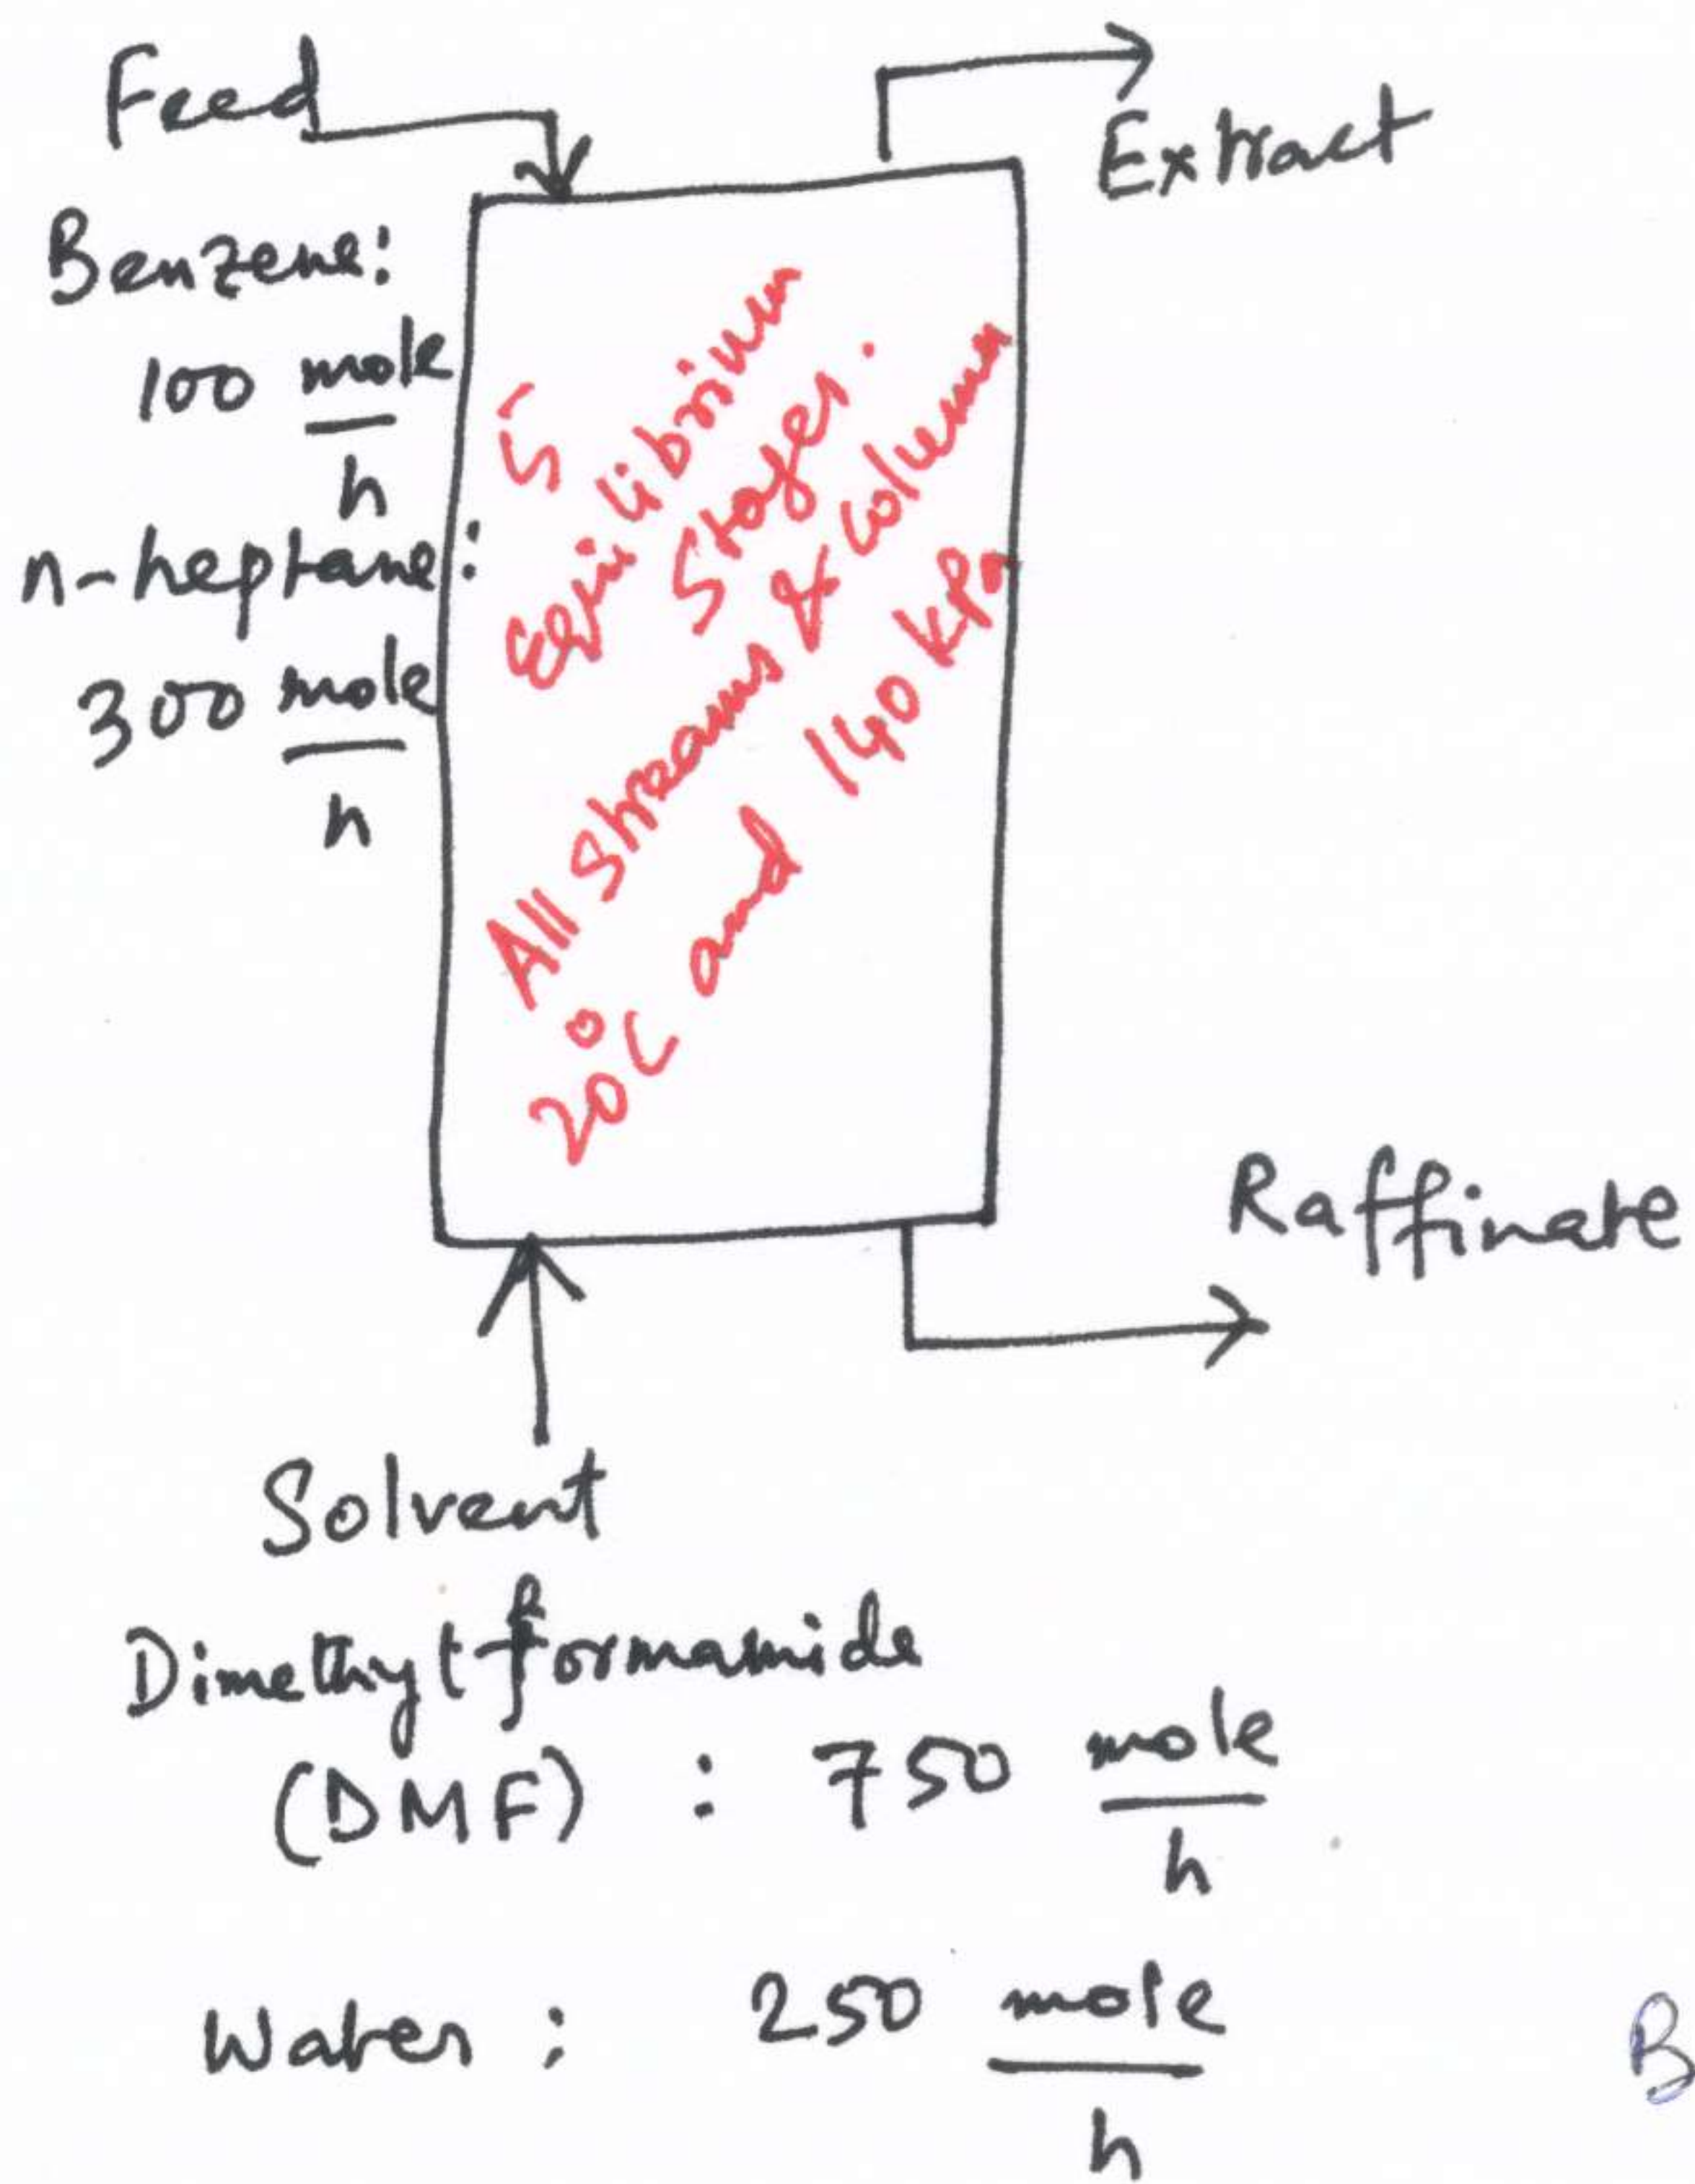 Feed
Extract
Benzene:
100 mole
h
n-heptane:
300 mole
h
5
Equilibrium
Stages.
All Streams & Column
20°C and 140 kPa
Raffinate
Solvent
Dimethyl formamide
(DMF) : 750 mole
h
Water : 250 mole
h
B